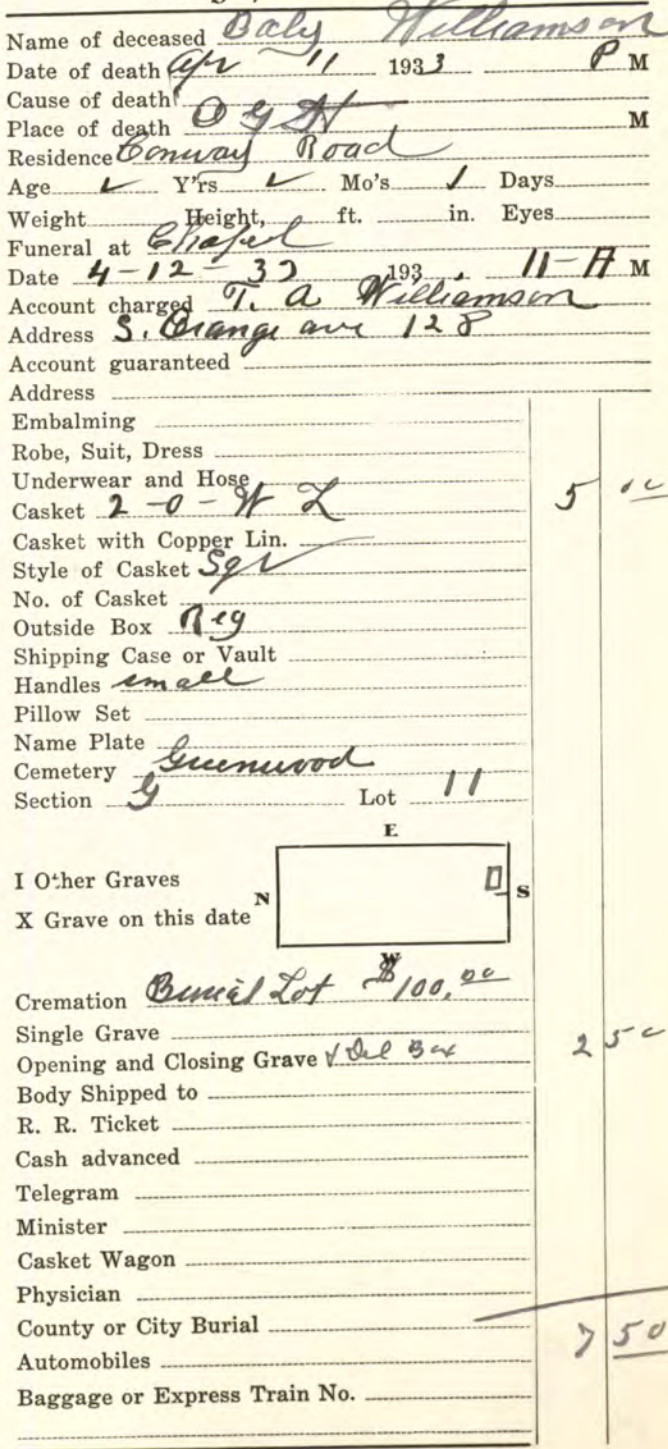 Name of deceased Baby Williamson
Date of death Apr 11 1933 P M
Cause of death
Place of death O G H M
Residence Conway Road
Age ✓ Y'rs ✓ Mo's ✓ Days
Weight Height, ft. in. Eyes
Funeral at Chapel
Date 4-12-33 193 . 11-A M
Account charged T. A Williamson
Address S. Orange ave 128
Account guaranteed
Address
Embalming
Robe, Suit, Dress
Underwear and Hose
Casket 2-0-W L 5 00
Casket with Copper Lin.
Style of Casket Sqr
No. of Casket
Outside Box Reg
Shipping Case or Vault
Handles small
Pillow Set
Name Plate
Cemetery Greenwood
Section G Lot 11
E
I Other Graves
N S
X Grave on this date
W
Cremation Burial Lot $100.00
Single Grave
Opening and Closing Grave & Del Box 2 50
Body Shipped to
R. R. Ticket
Cash advanced
Telegram
Minister
Casket Wagon
Physician
County or City Burial 7 50
Automobiles
Baggage or Express Train No.